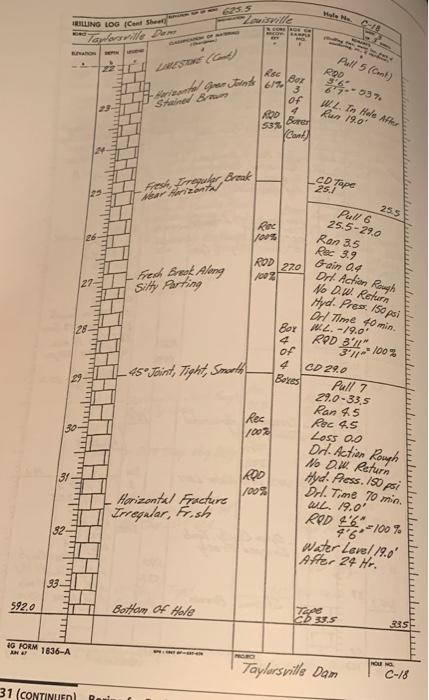 DRILLING LOG (Cont Sheet)
ELEVATION TOP OF HOLE 625.5
Hole No. C-18
PROJECT Taylorsville Dam
INSTALLATION Louisville
ELEVATION DEPTH LEGEND
CLASSIFICATION OF MATERIALS
(Description)
% CORE RECOVERY
BOX OR SAMPLE NO.
REMARKS
22
LIMESTONE (Cont)
Horizontal Open Joints
Stained Brown
Rec
61%
RQD
53%
Box
3
of
4
Boxes
(Cont)
Pull 5 (Cont)
RQD
3'6"
6'7" = 53%
W.L. In Hole After
Run 19.0'
23
24
25
Fresh, Irregular Break
Near Horizontal
CD Tape
25.1
25.5
Pull 6
25.5-29.0
Ran 3.5
Rec 3.9
Gain 0.4
Drl. Action Rough
No D.W. Return
Hyd. Press. 150 psi
Drl Time 40 min.
W.L. - 19.0'
RQD 3'11"
3'11" = 100%
CD 29.0
26
Rec
100%
RQD
100%
27.0
27
Fresh Break Along
Silty Parting
28
Box
4
of
4
Boxes
29
45° Joint, Tight, Smooth
Pull 7
29.0-33.5
Ran 4.5
Rec 4.5
Loss 0.0
Drl. Action Rough
No D.W. Return
Hyd. Press. 150 psi
Drl. Time 70 min.
W.L. 19.0'
RQD 4'6"
4'6" = 100%
Water Level 19.0'
After 24 Hr.
30
Rec
100%
31
RQD
100%
Horizontal Fracture
Irregular, Fresh
32
33
592.0
Bottom Of Hole
Tape
CD 33.5
33.5
FORM 1836-A
JUN 67
PROJECT
Taylorsville Dam
HOLE NO.
C-18
31 (CONTINUED)